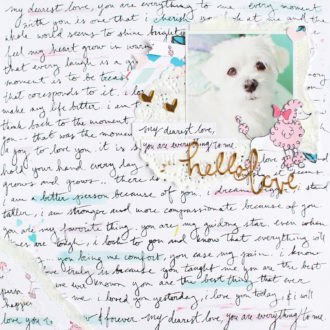 my dearest love, you are everything to me. every moment
with you is one that i cherish. you that me and the
whole world seems to shine bright
feel my heart grow in warm
that every laugh is a g
moment is to be treas
that coresponds to it. i do
make my life better. i am t
think back to the moment
you.. that was the momen
to you to love you. it is s
my dearest love,
you are everything to me.
hold your hand. every day
grows and grows... there is
hello love
i am a better person because of you. i dream
taller, i am stronger and more compassionate because of you
you are my favorite thing, you are my guiding star. even when
times are tough, i look to you and know that everything will
you bring me comfort, you ease my pain. i know
love truly is because you taught me. you are the best
i've ever known. you are the best thing that ever
happen me. i loved you yesterday, i love you today, & i will
love you forever. my dearest love, you are everything to me.